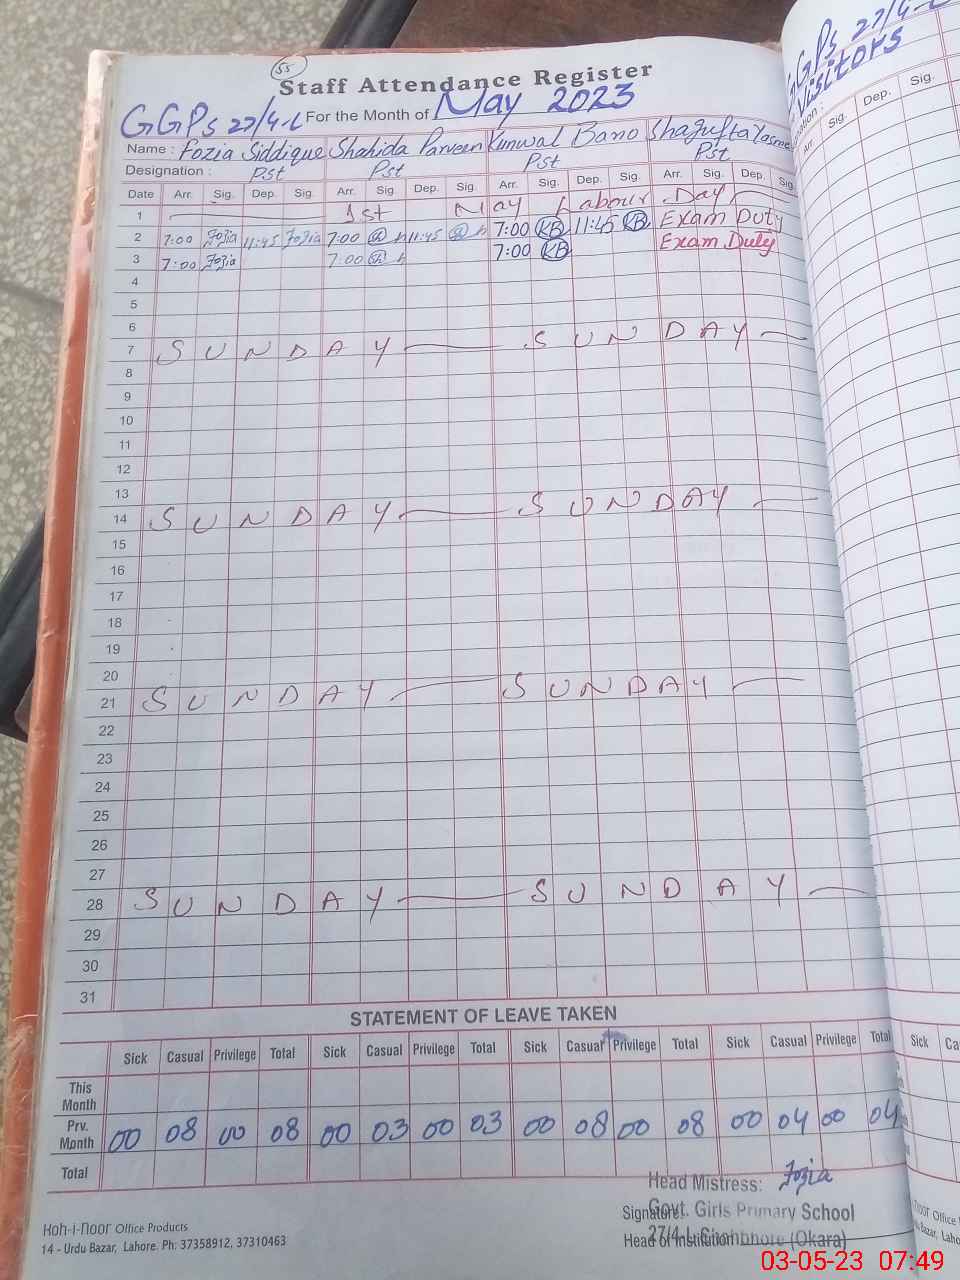 55
Staff Attendance Register
GGPs 27/4-L For the Month of May 2023
Name : Fozia Siddique Shahida Parveen Kunwal Bano Shagufta Yasme
Designation : Pst Pst Pst Pst
Date Arr. Sig. Dep. Sig. Arr. Sig. Dep. Sig. Arr. Sig. Dep. Sig. Arr. Sig. Dep. Sig.
1 1st May Labour Day
2 7:00 Fozia 11:45 Fozia 7:00 11:45 7:00 KB 11:45 KB Exam Duty
3 7:00 Fozia 7:00 7:00 KB Exam Duty
4
5
6
7 SUNDAY SUNDAY
8
9
10
11
12
13
14 SUNDAY SUNDAY
15
16
17
18
19
20
21 SUNDAY SUNDAY
22
23
24
25
26
27
28 SUNDAY SUNDAY
29
30
31
STATEMENT OF LEAVE TAKEN
Sick Casual Privilege Total Sick Casual Privilege Total Sick Casual Privilege Total Sick Casual Privilege Total
This Month
Prv. Month 00 08 00 08 00 03 00 03 00 08 00 08 00 04 00 04
Total
Head Mistress: Fozia
Signature
Govt. Girls Primary School
Head of Institution
27/4-L (Okara)
Koh-i-noor Office Products
14 - Urdu Bazar, Lahore. Ph: 37358912, 37310463
GGPs 27/4-L
Visitors
Arr Sig. Dep. Sig.
Sick Ca
03-05-23 07:49